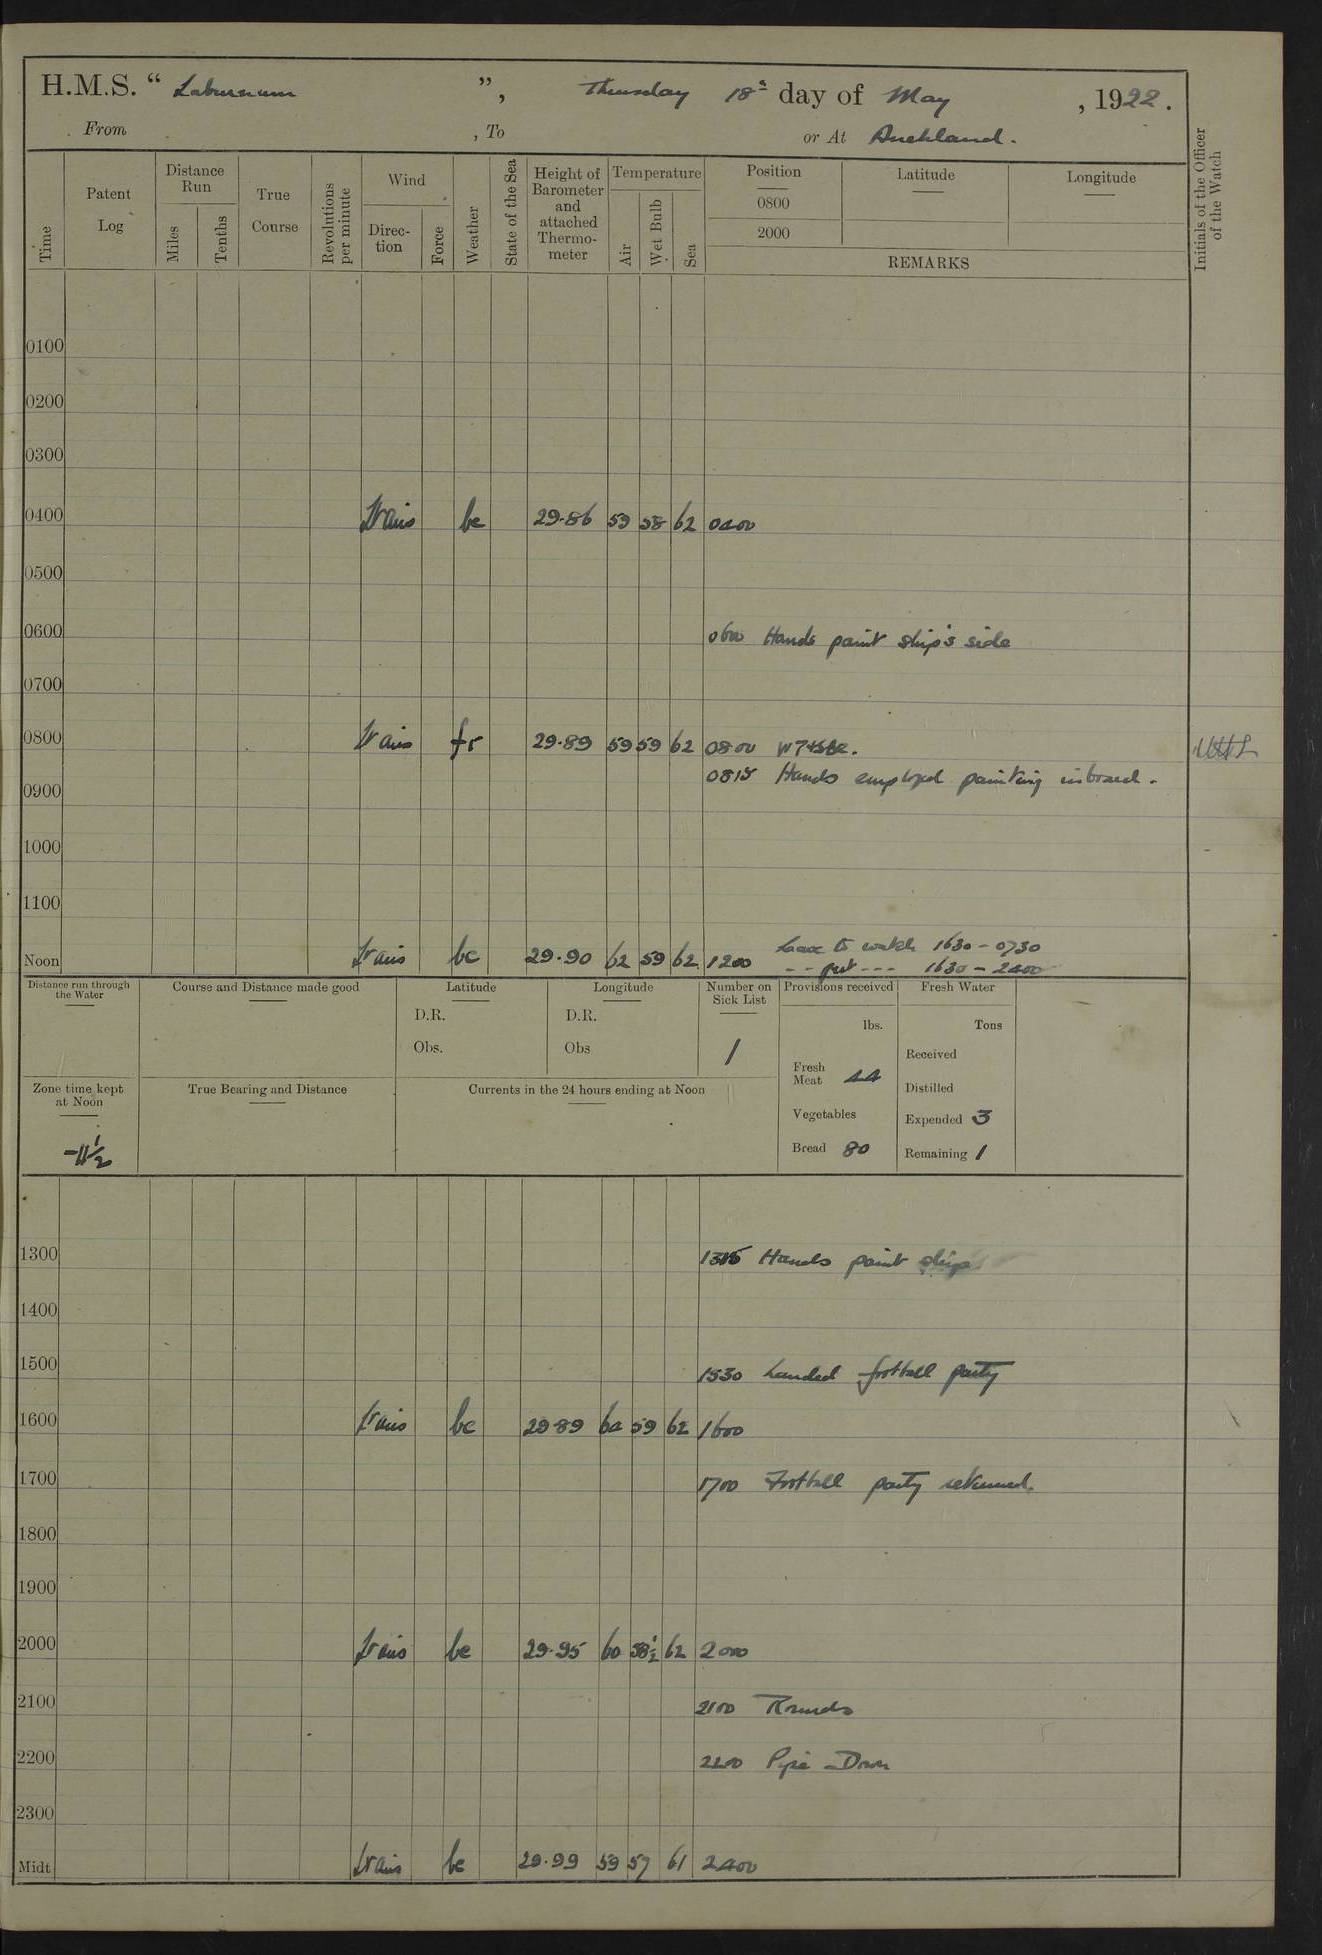 H.M.S. “ Laburnum ”, Thursday 18th day of May , 1922.
From , To or At Auckland.
Time
Patent Log
Distance Run
Miles
Tenths
True Course
Revolutions per minute
Wind
Direction
Force
Weather
State of the Sea
Height of Barometer and attached Thermometer
Temperature
Air
Wet Bulb
Sea
Position
0800
2000
Latitude
Longitude
REMARKS
Initials of the Officer of the Watch
0100
0200
0300
0400 bc 29.86 59 58 62 0400
0500
0600 0600 Hands paint ship's side
0700
0800 fr 29.89 59 59 62 0800
0815 Hands employed painting inboard.
0900
1000
1100
Leave to watch 1630 - 0730
Noon bc 29.90 62 59 62 1200 - - part - - - 1630 - 2400
Distance run through the Water
Course and Distance made good
Latitude
D.R.
Obs.
Longitude
D.R.
Obs
Number on Sick List
1
Provisions received
lbs.
Fresh Meat 44
Vegetables
Bread 80
Fresh Water
Tons
Received
Distilled
Expended 3
Remaining 1
Zone time kept at Noon
-11½
True Bearing and Distance
Currents in the 24 hours ending at Noon
1300 1315 Hands paint ship
1400
1500 1530 Landed football party
1600 bc 29 89 62 1600
1700 1700 Football party returned.
1800
1900
2000 bc 29.95 60 58½ 62 2000
2100 2100 Rounds
2200 2200 Pipe Down
2300
Midt bc 29.99 59 57 61 2400